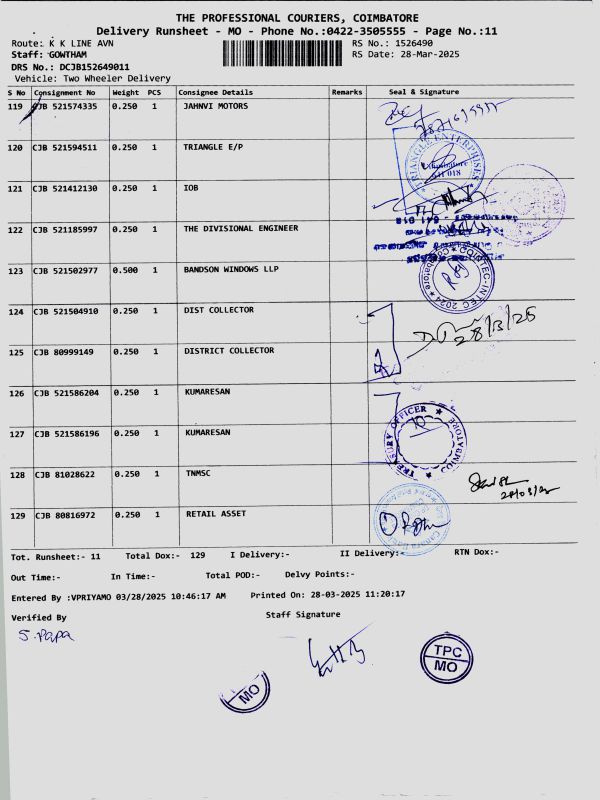 THE PROFESSIONAL COURIERS, COIMBATORE
Delivery Runsheet - MO - Phone No.:0422-3505555 - Page No.:11
Route: K K LINE AVN RS No.: 1526490
Staff: GOWTHAM RS Date: 28-Mar-2025
DRS No.: DCJB152649011
Vehicle: Two Wheeler Delivery
S No Consignment No Weight PCS Consignee Details Remarks Seal & Signature
119 CJB 521574335 0.250 1 JAHNVI MOTORS
120 CJB 521594511 0.250 1 TRIANGLE E/P
TRIANGLE ENTERPRISES
Coimbatore
641 018
121 CJB 521412130 0.250 1 IOB
122 CJB 521185997 0.250 1 THE DIVISIONAL ENGINEER
641 018
123 CJB 521502977 0.500 1 BANDSON WINDOWS LLP
COINTEC-INTEC 2024
Coimbatore
124 CJB 521504910 0.250 1 DIST COLLECTOR
28/3/25
125 CJB 80999149 0.250 1 DISTRICT COLLECTOR
126 CJB 521586204 0.250 1 KUMARESAN
TREASURY OFFICER
COIMBATORE
127 CJB 521586196 0.250 1 KUMARESAN
128 CJB 81028622 0.250 1 TNMSC
28/03/25
129 CJB 80816972 0.250 1 RETAIL ASSET
Tot. Runsheet:- 11 Total Dox:- 129 I Delivery:- II Delivery:- RTN Dox:-
Out Time:- In Time:- Total POD:- Delvy Points:-
Entered By :VPRIYAMO 03/28/2025 10:46:17 AM Printed On: 28-03-2025 11:20:17
Verified By Staff Signature
S. Papa
TPC
MO
MO